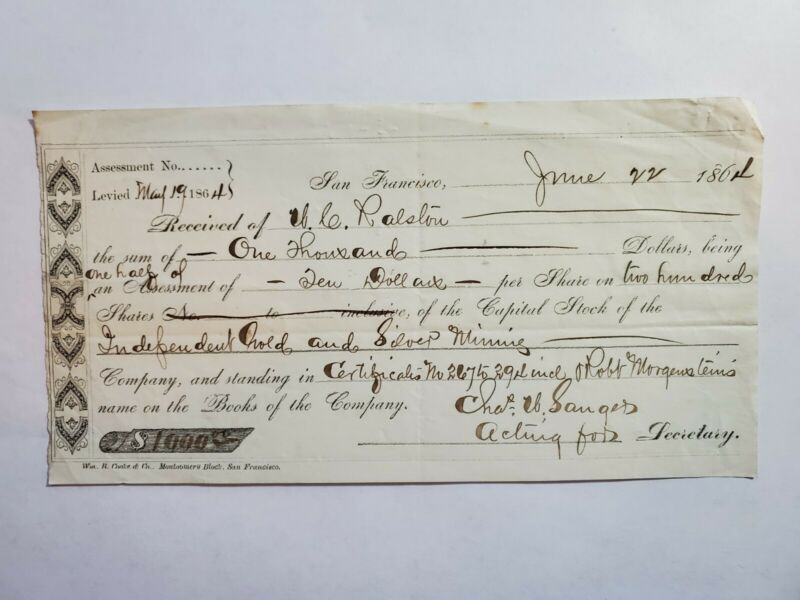 Assessment No.......}
Levied May 19 1864
San Francisco, June 22 1864
Received of W. C. Ralston
the sum of — One Thousand — Dollars, being
one half of
an Assessment of — Ten Dollars — per Share on two hundred
Shares No. to inclusive, of the Capital Stock of the
Independent Gold and Silver Mining
Company, and standing in Certificates No 267 to 294 incl Robt Morgenstein's
name on the Books of the Company.
Chas. W. Sanger
Acting for Secretary.
$1000
Wm. R. Cooke & Co., Montgomery Block, San Francisco.